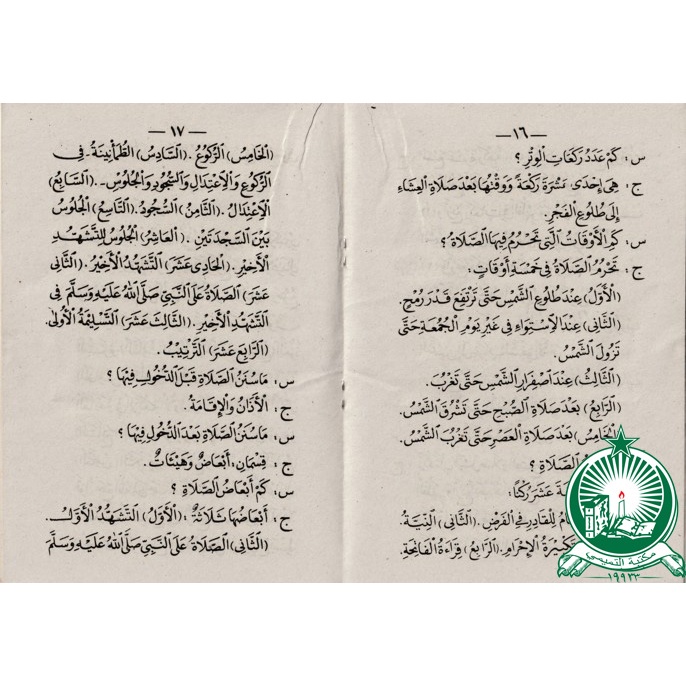 — ١٦ —
س : كَمْ عَدَدُ رَكَعَاتِ الْوِتْرِ ؟
ج : هِيَ إِحْدَى عَشْرَةَ رَكْعَةً وَوَقْتُهَا بَعْدَ صَلَاةِ الْعِشَاءِ
إِلَى طُلُوعِ الْفَجْرِ.
س : كَمِ الْأَوْقَاتُ الَّتِي تَحْرُمُ فِيهَا الصَّلَاةُ ؟
ج : تَحْرُمُ الصَّلَاةُ فِي خَمْسَةِ أَوْقَاتٍ :
(الْأَوَّلُ) عِنْدَ طُلُوعِ الشَّمْسِ حَتَّى تَرْتَفِعَ قَدْرَ رُمْحٍ.
(الثَّانِي) عِنْدَ الْاِسْتِوَاءِ فِي غَيْرِ يَوْمِ الْجُمُعَةِ حَتَّى
تَزُولَ الشَّمْسُ.
(الثَّالِثُ) عِنْدَ اصْفِرَارِ الشَّمْسِ حَتَّى تَغْرُبَ.
(الرَّابِعُ) بَعْدَ صَلَاةِ الصُّبْحِ حَتَّى تَشْرُقَ الشَّمْسُ.
(الْخَامِسُ) بَعْدَ صَلَاةِ الْعَصْرِ حَتَّى تَغْرُبَ الشَّمْسُ.
الصَّلَاةِ ؟
عَشَرَ رُكْنًا :
لِلْقَادِرِ فِي الْفَرْضِ. (الثَّانِي) النِّيَّةُ
تَكْبِيرَةُ الْإِحْرَامِ. (الرَّابِعُ) قِرَاءَةُ الْفَاتِحَةِ.
— ١٧ —
(الْخَامِسُ) الرُّكُوعُ. (السَّادِسُ) الطُّمَأْنِينَةُ - فِي
الرُّكُوعِ وَالْاِعْتِدَالِ وَالسُّجُودِ وَالْجُلُوسِ -. (السَّابِعُ)
الْاِعْتِدَالُ. (الثَّامِنُ) السُّجُودُ. (التَّاسِعُ) الْجُلُوسُ
بَيْنَ السَّجْدَتَيْنِ. (الْعَاشِرُ) الْجُلُوسُ لِلتَّشَهُّدِ
الْأَخِيرِ. (الْحَادِي عَشَرَ) التَّشَهُّدُ الْأَخِيرُ. (الثَّانِي
عَشَرَ) الصَّلَاةُ عَلَى النَّبِيِّ صَلَّى اللهُ عَلَيْهِ وَسَلَّمَ فِي
التَّشَهُّدِ الْأَخِيرِ. (الثَّالِثَ عَشَرَ) التَّسْلِيمَةُ الْأُولَى
(الرَّابِعَ عَشَرَ) التَّرْتِيبُ.
س : مَا سُنَنُ الصَّلَاةِ قَبْلَ الدُّخُولِ فِيهَا ؟
ج : الْأَذَانُ وَالْإِقَامَةُ.
س : مَا سُنَنُ الصَّلَاةِ بَعْدَ الدُّخُولِ فِيهَا ؟
ج : قِسْمَانِ : أَبْعَاضٌ وَهَيْئَاتٌ.
س : كَمْ أَبْعَاضُ الصَّلَاةِ ؟
ج : أَبْعَاضُهَا ثَلَاثَةٌ : (الْأَوَّلُ) التَّشَهُّدُ الْأَوَّلُ.
(الثَّانِي) الصَّلَاةُ عَلَى النَّبِيِّ صَلَّى اللهُ عَلَيْهِ وَسَلَّمَ
مكتبة التميمي